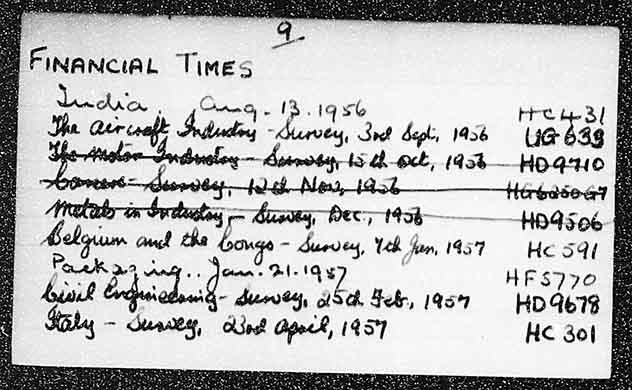 9
FINANCIAL TIMES
India. Aug. 13. 1956 HC431
The Aircraft Industry - Survey, 3rd Sept, 1956 UG633
The Motor Industry - Survey, 15th Oct, 1956 HD9710
Survey, 12th Nov, 1956
Metals in Industry - Survey, Dec., 1956 HD9506
Belgium and the Congo - Survey, 7th Jan, 1957 HC591
Packaging.. Jan. 21. 1957 HF5770
Civil Engineering - Survey, 25th Feb, 1957 HD9678
Italy - Survey, 23rd April, 1957 HC301